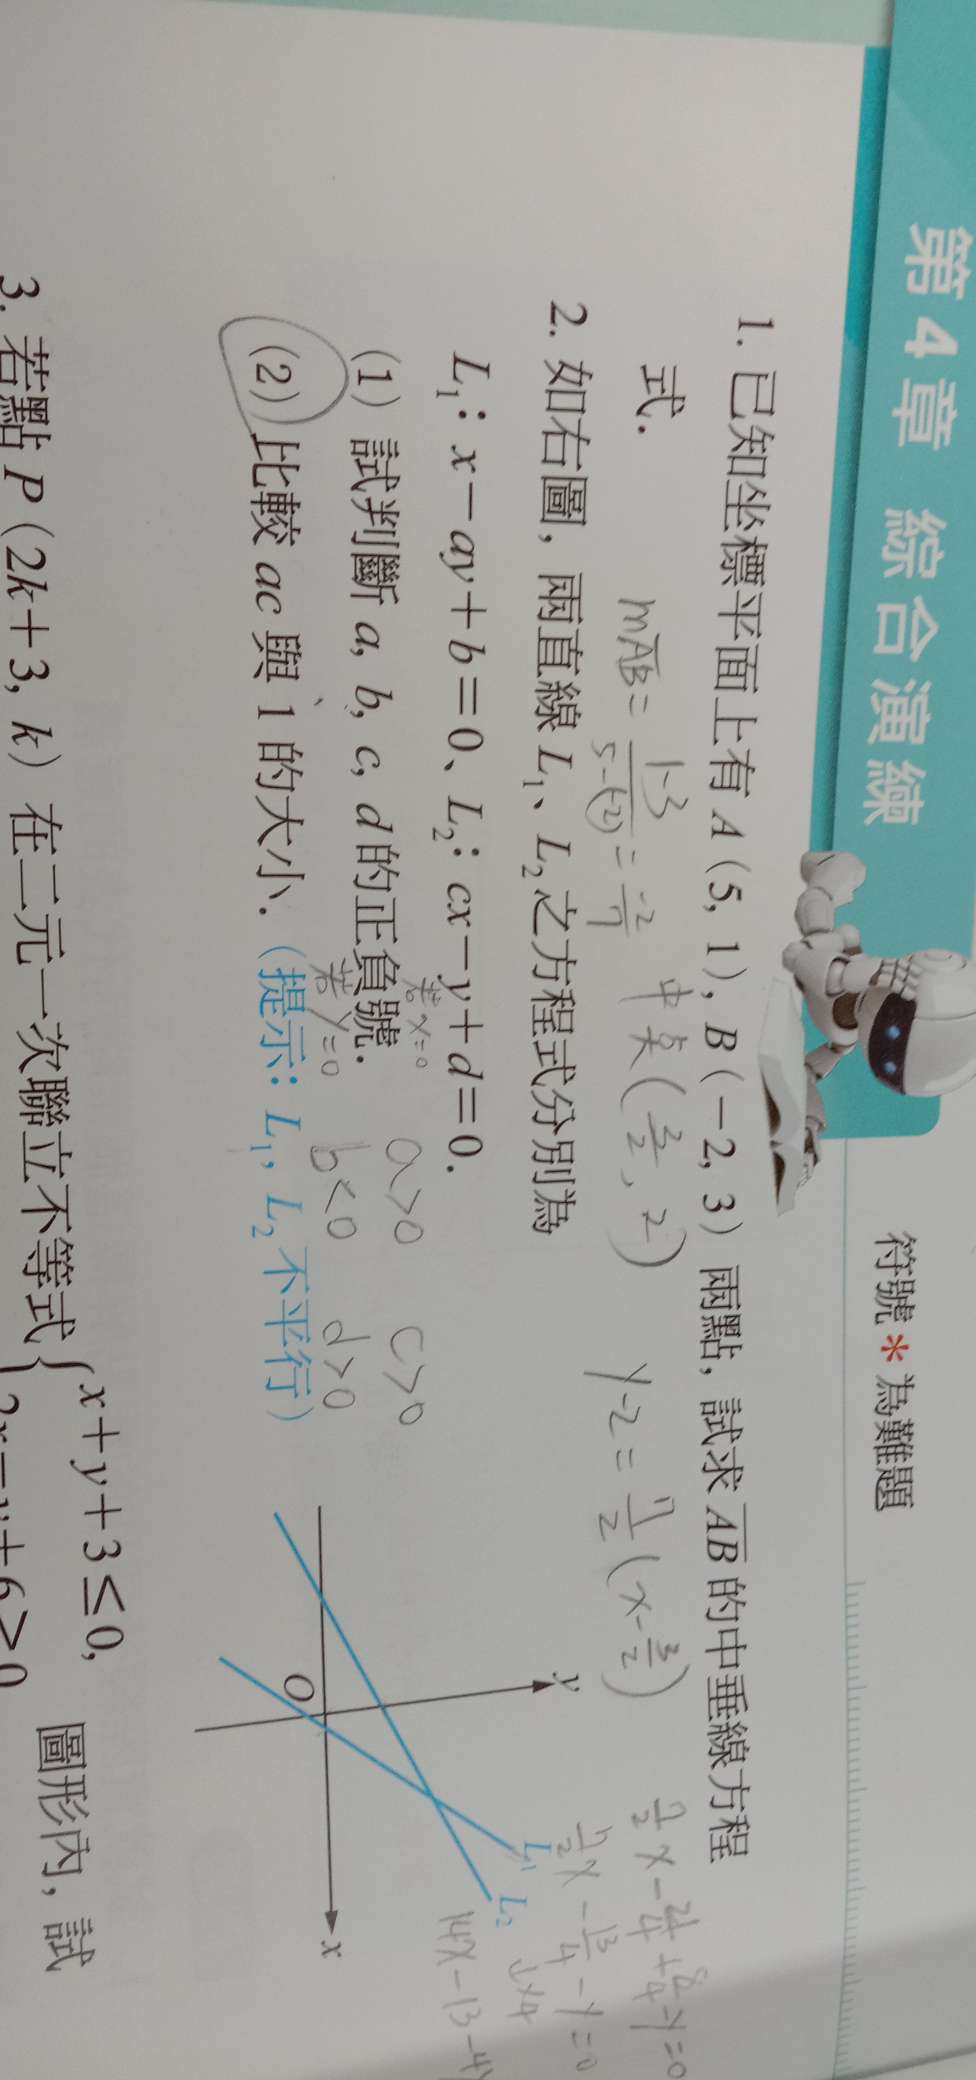 第4章 綜合演練
符號*為難題
1. 已知坐標平面上有 A(5, 1), B(−2, 3) 兩點, 試求 AB 的中垂線方程
式.
mAB = 1-3/5-(-2) = -2/7 中點(3/2, 2) y-2 = 7/2(x-3/2)
7/2x - 21/4 + 8/4 - y = 0
7/2x - 13/4 - y = 0
↓×4
14x-13-4y
2. 如右圖, 兩直線 L₁、L₂ 之方程式分別為
L₁: x−ay+b=0、L₂: cx−y+d=0.
(1) 試判斷 a, b, c, d 的正負號.
若x=0 a>0 c>0
若y=0 b<0 d>0
(2) 比較 ac 與 1 的大小. (提示: L₁, L₂ 不平行)
y
L₁
L₂
O
x
3. 若點 P(2k+3, k) 在二元一次聯立不等式 { x+y+3≤0, 圖形內, 試
2x−y+6≥0